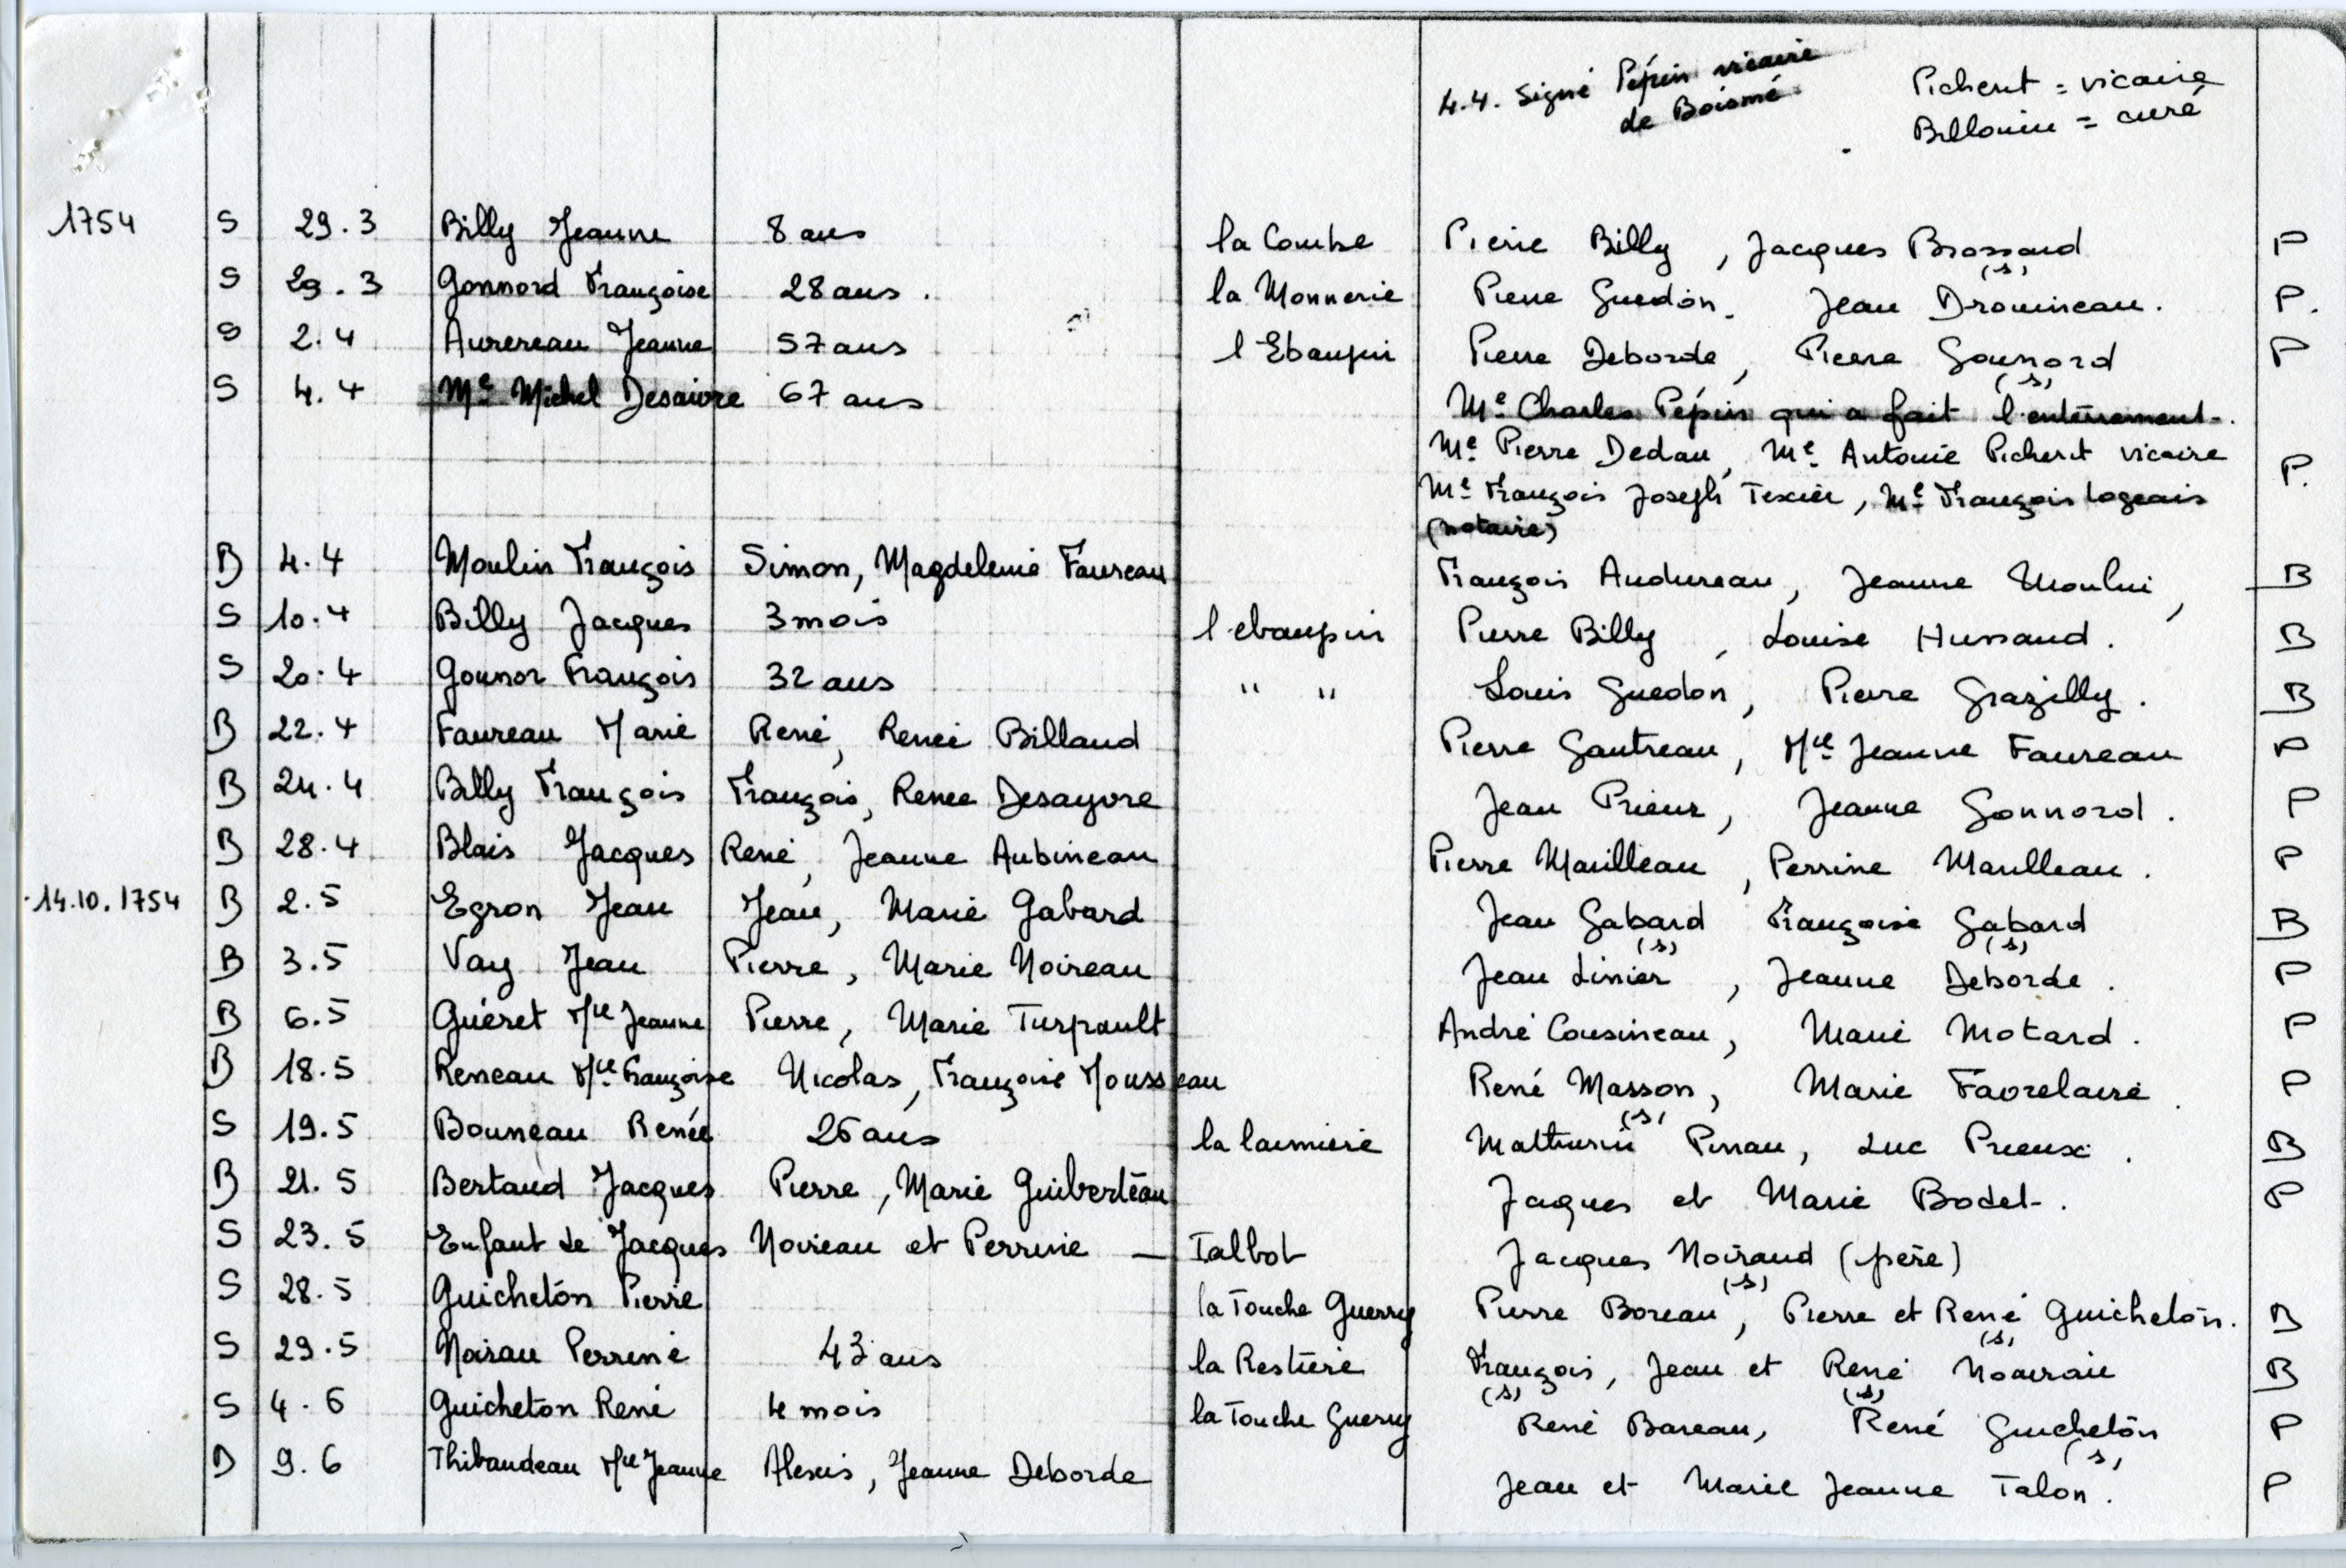 4.4. Signé Pépin vicaire
de Boismé
Picherit = vicaire
Billouin = curé
1754 S 29.3 Billy Jeanne 8 ans la Combe Pierre Billy, Jacques Brossard (s) P
S 29.3 Gonnord Françoise 28 ans. la Monnerie Pierre Guedon. Jean Drouineau. P.
S 2.4 Aurereau Jeanne 57 ans l'Ebaupin Pierre Deborde, Pierre Gounord (s) P
S 4.4 Me Michel Desaivre 67 ans Me Charles Pépin qui a fait l'enterrement.
Me Pierre Dedau, Me Antoine Picherit vicaire
Me François Joseph Texier, Me François Logeais P.
(notaire)
B 4.4 Moulin François Simon, Magdeleine Faureau François Audureau, Jeanne Moulin, B
S 10.4 Billy Jacques 3 mois l'ebaupin Pierre Billy, Louise Hussaud. B
S 20.4 Gounor François 32 ans " " Louis Guedon, Pierre Grazilly. B
B 22.4 Faureau Marie René, Renée Billaud Pierre Gautreau, Mie Jeanne Faureau P
B 24.4 Billy François François, Renee Desayvre Jean Prieur, Jeanne Gonnord. P
B 28.4 Blais Jacques René, Jeanne Aubineau Pierre Marilleau, Perrine Marilleau. P
14.10.1754 B 2.5 Egron Jean Jean, Marie Gabard Jean Gabard (s) Françoise Gabard (s) B
B 3.5 Vay Jean Pierre, Marie Noireau Jean Linier, Jeanne Deborde. P
B 6.5 Guéret Mie Jeanne Pierre, Marie Turpault André Cousineau, Marie Motard. P
B 18.5 Reneau Mie Françoise Nicolas, Françoise Mousseau René Masson (s), Marie Favrelaire. P
S 19.5 Bouneau Renée 26 ans la laimiere Mathurin Pinau, Luc Prieux. B
B 21.5 Bertaud Jacques Pierre, Marie Guiberteau Jacques et Marie Bodet. P
S 23.5 Enfant de Jacques Noireau et Perrine — Talbot Jacques Noiraud (père) (s)
S 28.5 Guicheton Pierre la Touche Guerry Pierre Boreau, Pierre et René Guicheton. (s) B
S 29.5 Noirau Perrine 43 ans la Restière François (s), Jean et René (s) Noairau B
S 4.6 Guicheton René 4 mois la Touche Guerry René Bareau, René Guicheton (s) P
B 9.6 Thibaudeau Mie Jeanne Alexis, Jeanne Deborde Jean et Marie Jeanne Talon. P